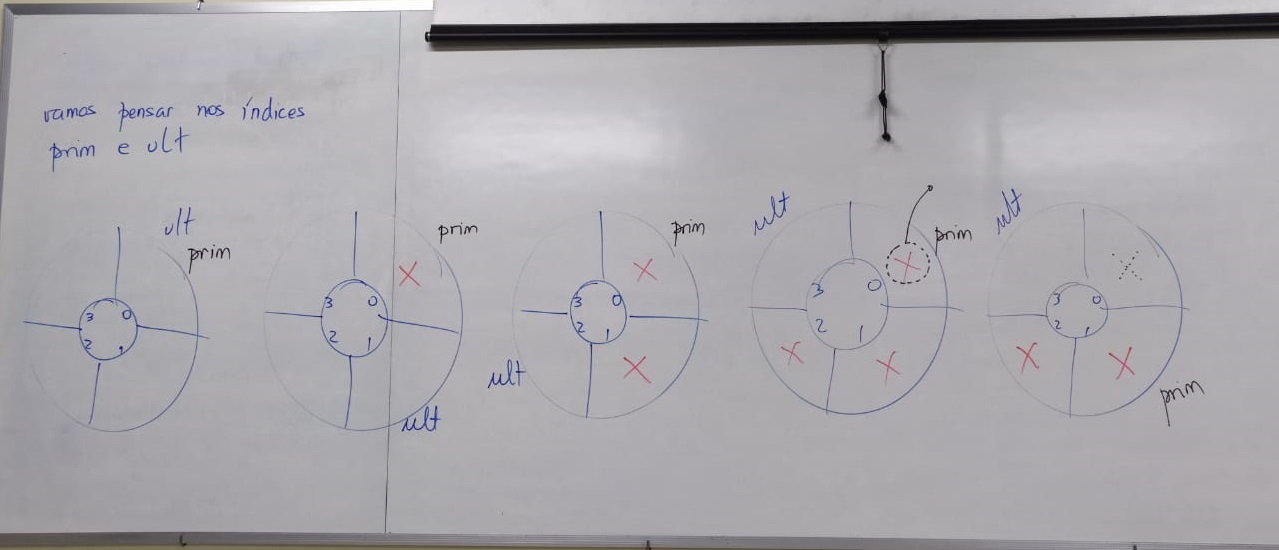 vamos pensar nos índices
prim e ult
ult
prim
3 0
2 1
prim
3 0
2 1
ult
prim
3 0
2 1
ult
ult
prim
3 0
2 1
ult
3 0
2 1
prim